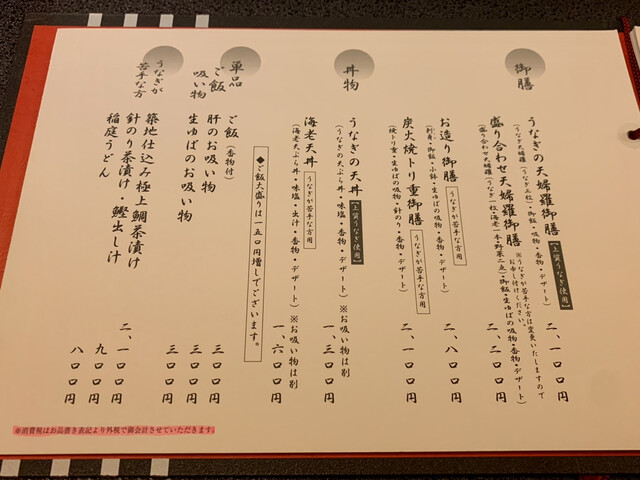 御膳
うなぎの天婦羅御膳【上質うなぎ使用】 二、一〇〇円
(うなぎ天婦羅(うなぎ三枚)・御飯・吸物・香物・デザート)
※うなぎが苦手な方は変更いたしますので
お申し付けください。
盛り合わせ天婦羅御膳 二、二〇〇円
(盛り合わせ天婦羅(うなぎ一枚・海老一本・野菜二点)・御飯・生ゆばの吸物・香物・デザート)
お造り御膳 うなぎが苦手な方用 二、八〇〇円
(刺身・御飯・小鉢・生ゆばの吸物・香物・デザート)
炭火焼トリ重御膳 うなぎが苦手な方用 二、一〇〇円
(焼トリ重・生ゆばの吸物・針のり・香物・デザート)
丼物
うなぎの天丼【上質うなぎ使用】 一、三〇〇円
(うなぎの天ぷら丼・味塩・香物・デザート)※お吸い物は別
海老天丼 うなぎが苦手な方用 一、六〇〇円
(海老天ぷら丼・味塩・出汁・香物・デザート)※お吸い物は別
単品
ご飯
吸い物
◆ご飯大盛りは一五〇円増しでございます。
ご飯(香物付) 三〇〇円
肝のお吸い物 三〇〇円
生ゆばのお吸い物 三〇〇円
うなぎが
苦手な方
築地仕込み極上鯛茶漬け 二、一〇〇円
針のり茶漬け・鰹出し汁 九〇〇円
稲庭うどん 八〇〇円
※消費税はお品書き表記より外税で御会計させていただきます。